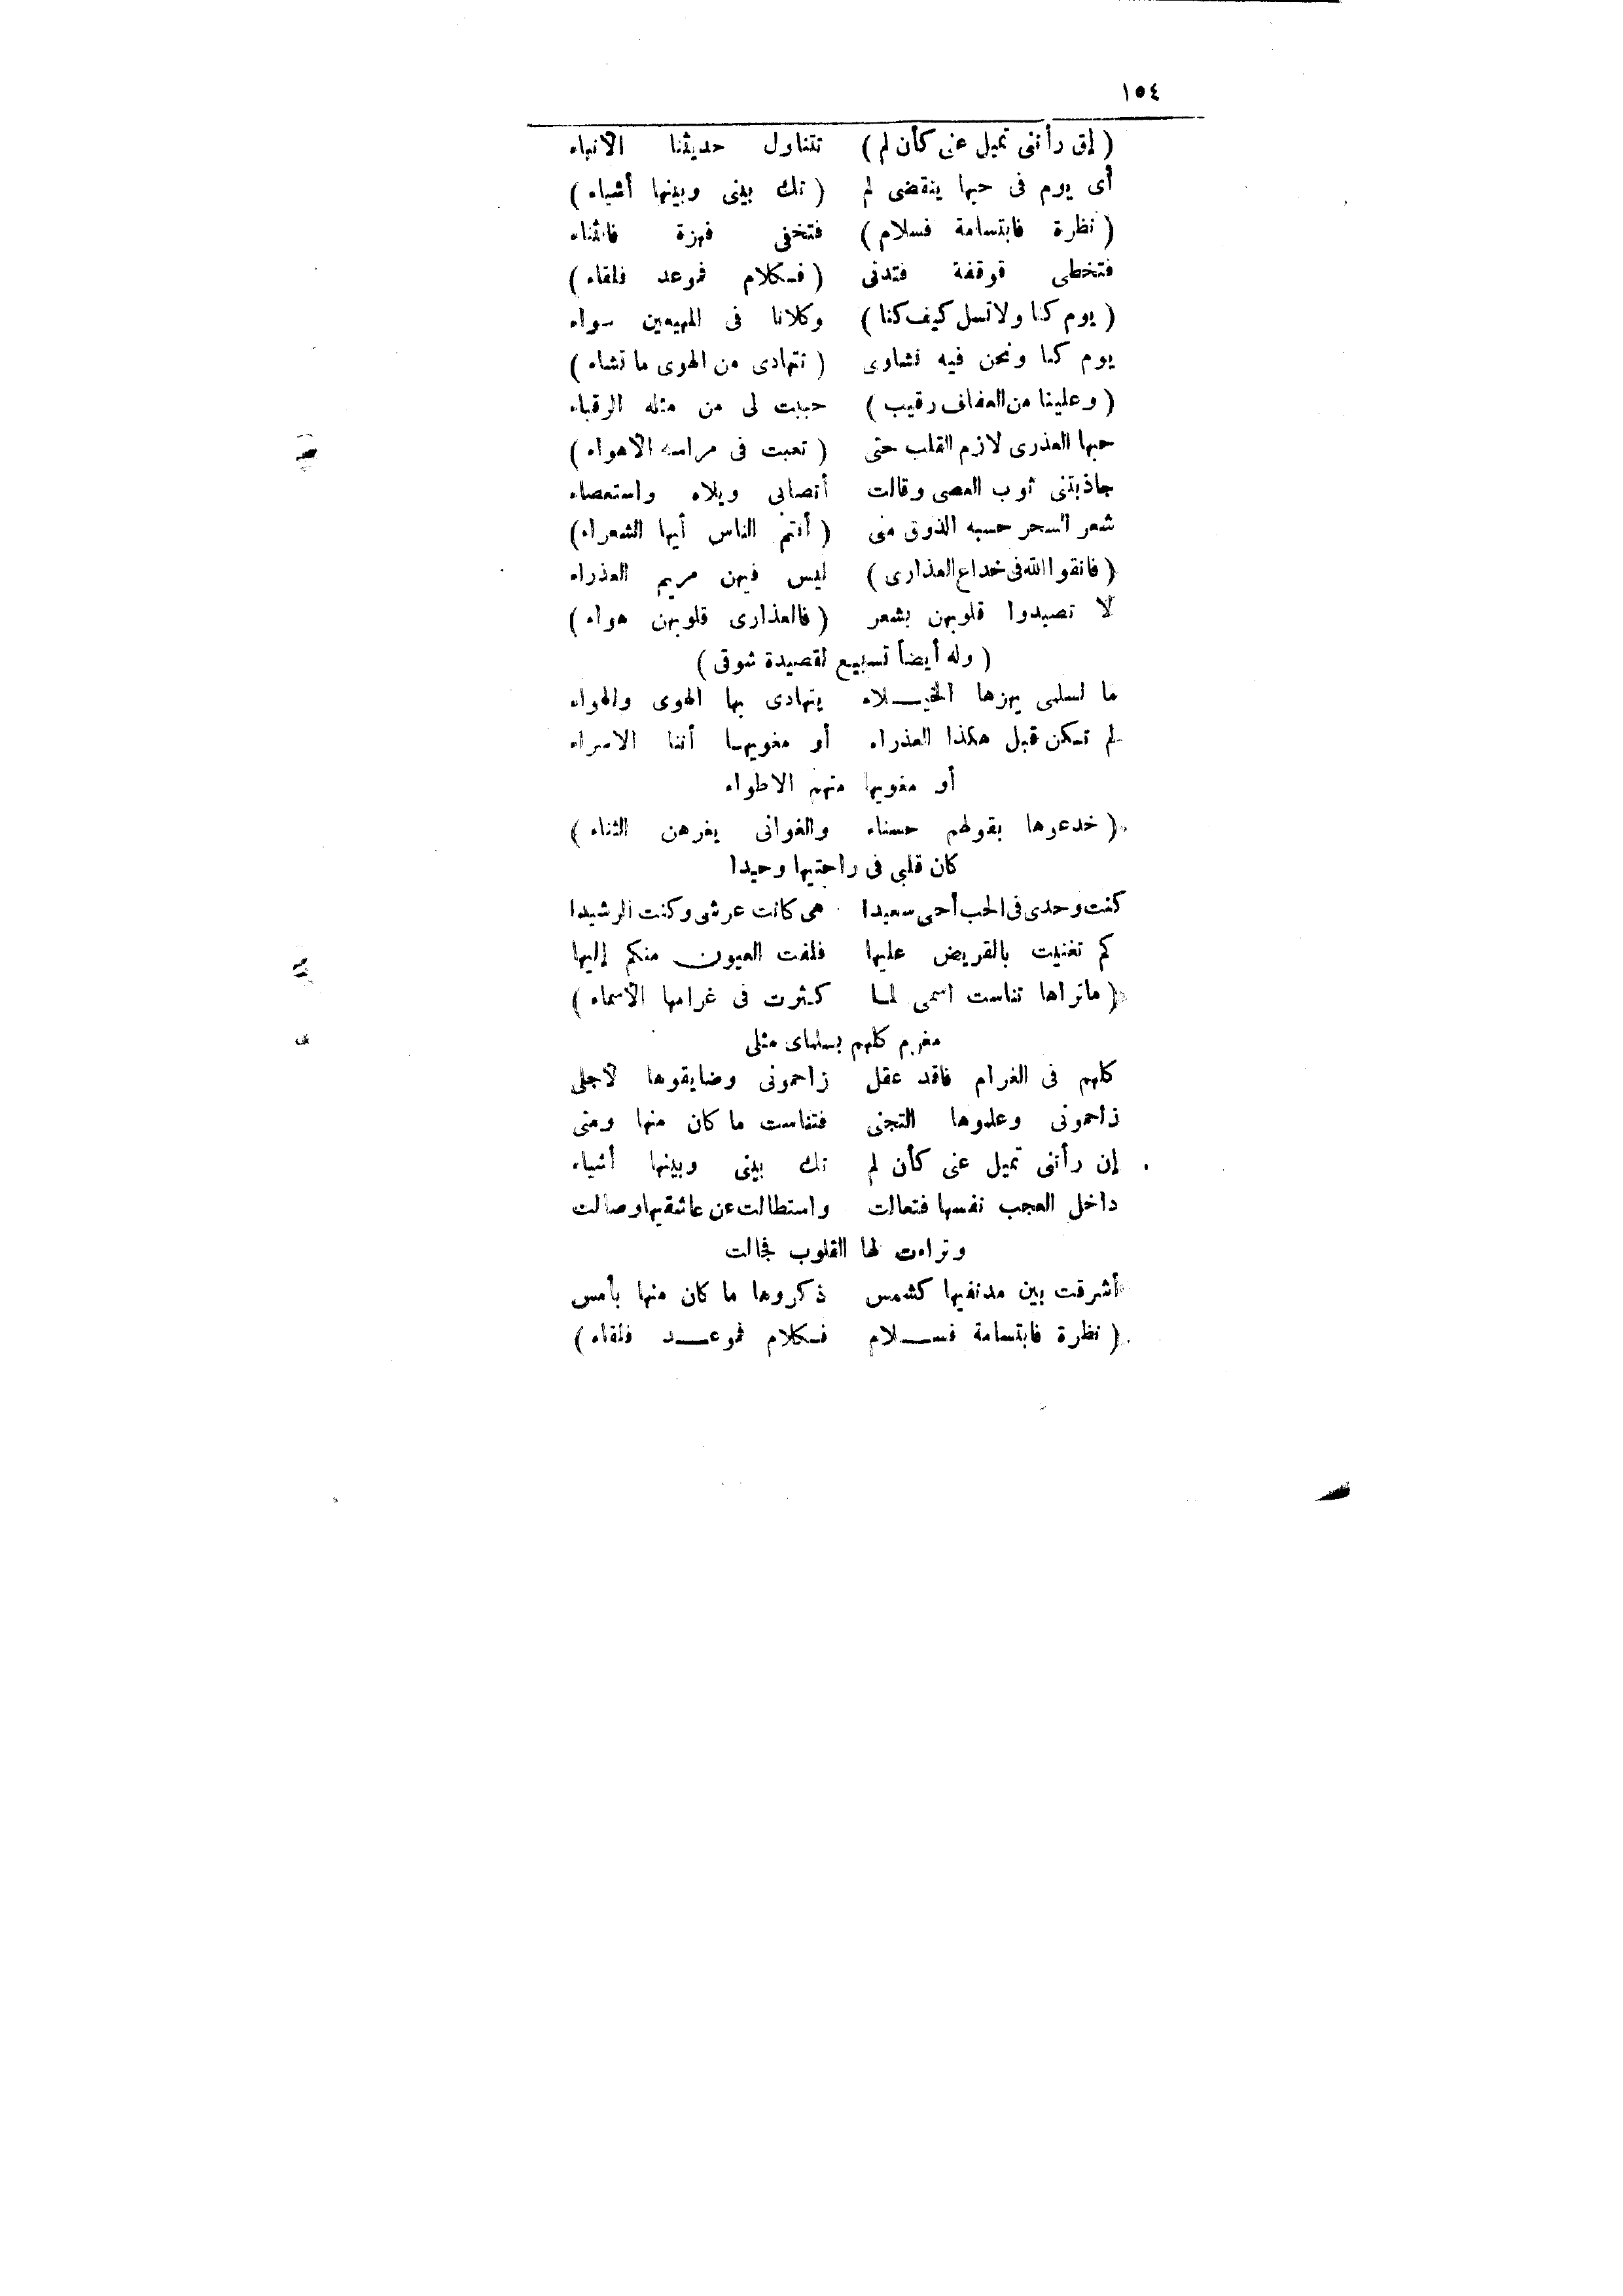 ١٥٤
( إن رأتنى تميل عنى كأن لم ) تتناول حديثنا الأنباء
أى يوم فى حبها ينقضى لم ( تك بينى وبينها أشياء )
( نظرة فابتسامة فسلام ) فتخفى فهزة فانثناء
فتخطى فوقفة فتدنى ( فكلام فموعد فلقاء )
( يوم كنا ولا تسل كيف كنا ) وكلانا فى المهيعين سواء
يوم كنا ونحن فيه نشاوى ( نتهادى من الهوى ما نشاء )
( وعلينا من العفاف رقيب ) حببت لى من مثله الرقباء
حبها العذرى لازم القلب حتى ( تعبت فى مراسه الأهواء )
جاذبتنى ثوب العصى وقالت أتصابى ويلاه واستعصاء
شعر السحر حسبه الذوق منى ( أنتم الناس أيها الشعراء)
( فاتقوا الله فى خداع العذارى ) ليس فيهن مريم العذراء
لا تصيدوا قلوبهن بشعر ( فالعذارى قلوبهن هواء )
( وله أيضاً تسبيع لقصيدة شوقى )
ما لسلمى يهزها الخيـلاء يتهادى بها الهوى والهواء
لم تكن قبل هكذا العذراء أو مغويها أننا الاسراء
أو مغويها منهم الاطواء
( خدعوها بقولهم حسناء والغوانى يغرهن الثناء )
كان قلبى فى راحتيها وحيدا
كنت وحدى فى الحب أحى سعيدا هى كانت عرشى وكنت الرشيدا
كم تغنيت بالقريض عليها فلفت العيون منكم إليها
( ماتراها تناست اسمى لمـا كثرت فى غرامها الأسماء )
مغرم كلهم بسلماى مثلى
كلهم فى الغرام فاقد عقل زاحمونى وضايقوها لأجلى
زاحمونى وعلموها التجنى فتناست ما كان منها ومنى
إن رأتنى تميل عنى كأن لم تك بينى وبينها أشياء
داخل العجب نفسها فتعالت واستطالت عن عاشقيها وصالت
وتراءت لها القلوب فجالت
أشرقت بين مدنفيها كشمس ذكروها ما كان منها بأمس
( نظرة فابتسامة فسـلام فكلام فموعـد فلقاء )